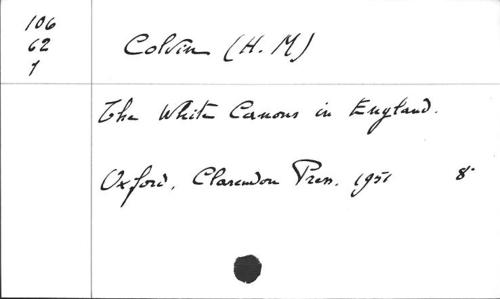 106
62
7
Colvin (H. M)
The White Canons in England.
Oxford, Clarendon Press. 1951 8°